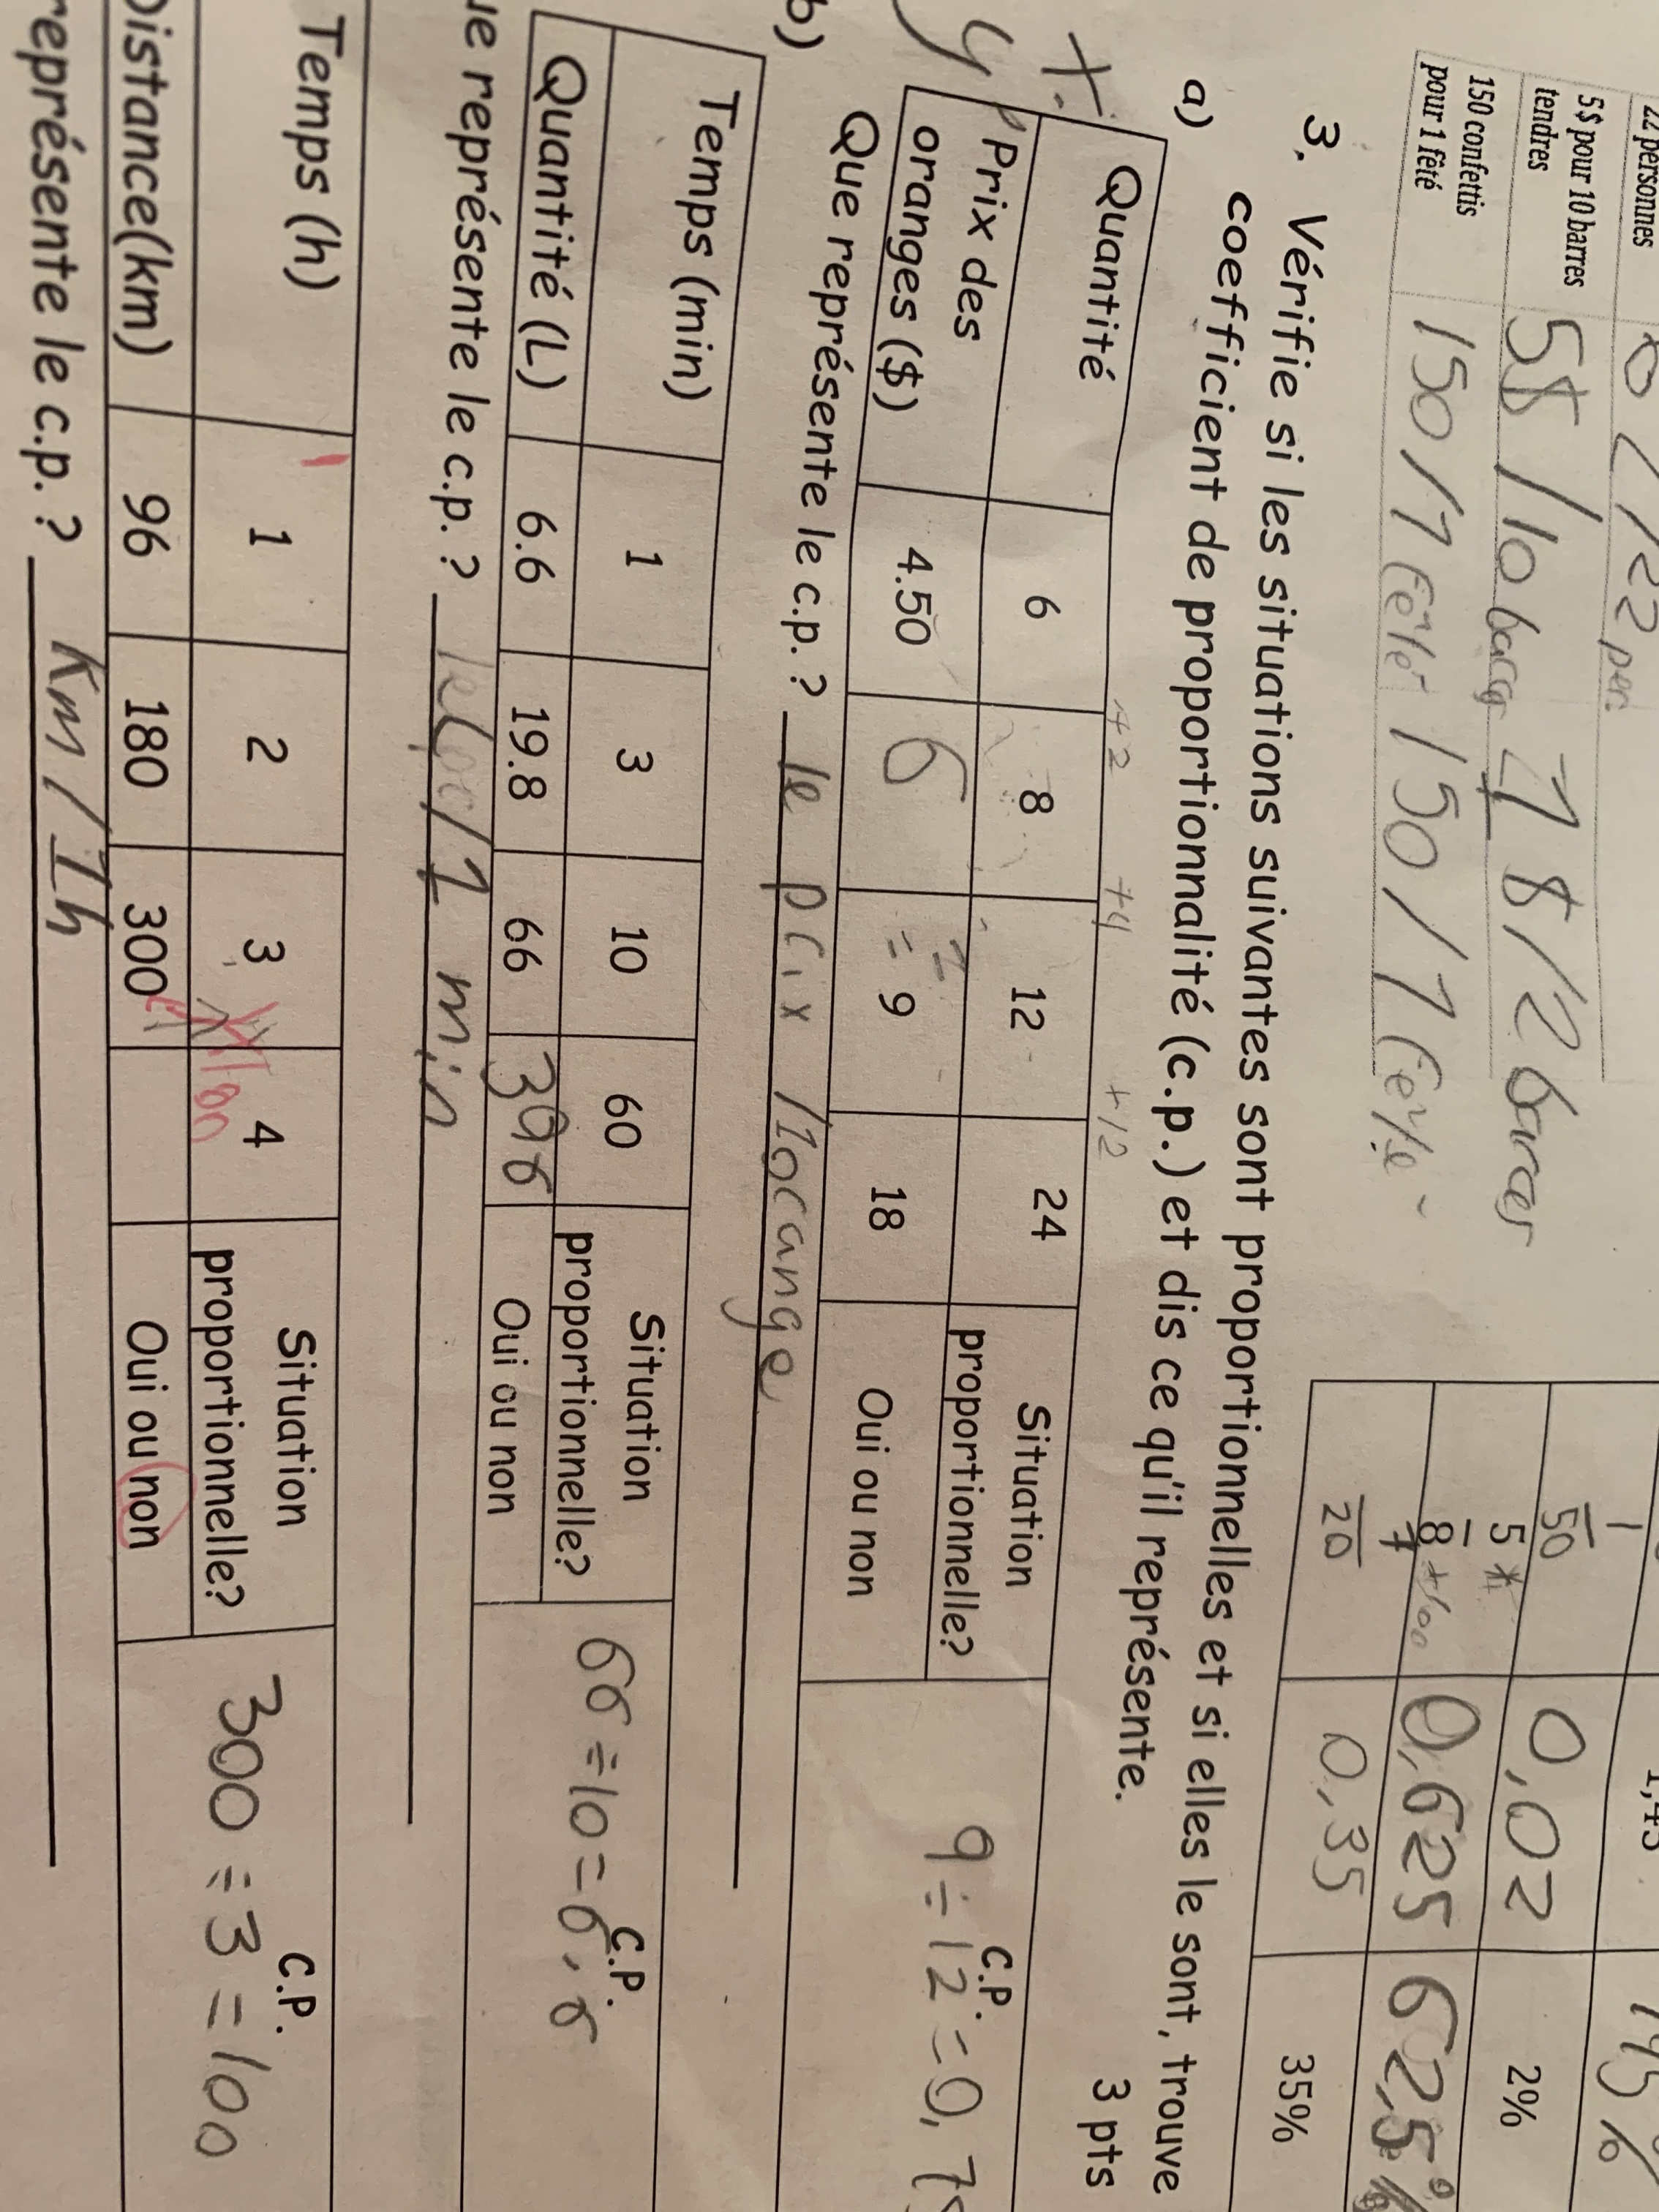 22 personnes
22 per.
5$ pour 10 barres
tendres
5$ / 10 barres
1$ / 2 barres
150 confettis
pour 1 fêté
150 / 1
150 / 1
1
50
0,02
2%
5
8
0,625
62,5%
7
20
0,35
35%
3. Vérifie si les situations suivantes sont proportionnelles et si elles le sont, trouve
coefficient de proportionnalité (c.p.) et dis ce qu'il représente.
3 pts
a)
+2 +4 +12
Quantité 6 8 12 24 Situation proportionnelle? C.P.
Prix des oranges ($) 4.50 6 = 9 18 Oui ou non 9 ÷ 12 = 0,7
Que représente le c.p. ? le prix /1 orange
b)
Temps (min) 1 3 10 60 Situation proportionnelle? C.P.
Quantité (L) 6.6 19.8 66 396 Oui ou non 66 ÷ 10 = 6,6
ue représente le c.p. ? /1 min
Temps (h) 1 2 3 4 Situation proportionnelle? C.P.
Distance(km) 96 180 300 Oui ou non 300 ÷ 3 = 100
représente le c.p. ? Km / 1h